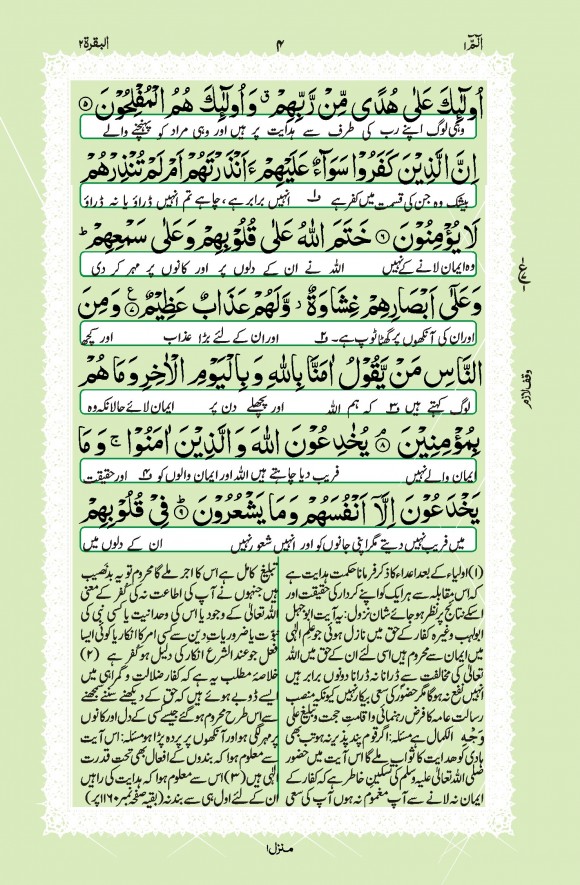 الٓمّٓ ۱
۴
البقرة ۲
اُولٰٓئِكَ عَلٰى هُدًى مِّنْ رَّبِّهِمْ ۗ وَ اُولٰٓئِكَ هُمُ الْمُفْلِحُوْنَ ۝۵
وہی لوگ اپنے رب کی طرف سے ہدایت پر ہیں اور وہی مراد کو پہنچنے والے
اِنَّ الَّذِيْنَ كَفَرُوْا سَوَآءٌ عَلَيْهِمْ ءَاَنْذَرْتَهُمْ اَمْ لَمْ تُنْذِرْهُمْ
بیشک وہ جن کی قسمت میں کفر ہے ۱ انہیں برابر ہے، چاہے تم انہیں ڈراؤ یا نہ ڈراؤ
لَا يُؤْمِنُوْنَ ۝۶ خَتَمَ اللّٰهُ عَلٰى قُلُوْبِهِمْ وَعَلٰى سَمْعِهِمْ ؕ
وہ ایمان لانے کے نہیں اللہ نے ان کے دلوں پر اور کانوں پر مہر کر دی
وَعَلٰٓى اَبْصَارِهِمْ غِشَاوَةٌ ؗ وَّلَهُمْ عَذَابٌ عَظِيْمٌ ۝۷ ع وَمِنَ
اور ان کی آنکھوں پر گھٹا ٹوپ ہے۔ ۲ اور ان کے لئے بڑا عذاب اور کچھ
النَّاسِ مَنْ يَّقُوْلُ اٰمَنَّا بِاللّٰهِ وَ بِالْيَوْمِ الْاٰخِرِ وَمَا هُمْ
لوگ کہتے ہیں ۳ کہ ہم اللہ اور پچھلے دن پر ایمان لائے حالانکہ وہ
وقف لازم
بِمُؤْمِنِيْنَ ۝۸ يُخٰدِعُوْنَ اللّٰهَ وَ الَّذِيْنَ اٰمَنُوْا ۚ وَ مَا
ایمان والے نہیں فریب دیا چاہتے ہیں اللہ اور ایمان والوں کو ۴ اور حقیقت
يَخْدَعُوْنَ اِلَّاۤ اَنْفُسَهُمْ وَمَا يَشْعُرُوْنَ ۝۹ؕ فِيْ قُلُوْبِهِمْ
میں فریب نہیں دیتے مگر اپنی جانوں کو اور انہیں شعور نہیں ان کے دلوں میں
(۱) اولیاء کے بعد اعداء کا ذکر فرمانا حکمت ہدایت ہے
کہ اس مقابلہ سے ہر ایک کو اپنے کردار کی حقیقت اور
اسکے نتائج پر نظر ہو جائے شان نزول: یہ آیت ابوجہل
ابولہب وغیرہ کفار کے حق میں نازل ہوئی جو علم الٰہی
میں ایمان سے محروم ہیں اسی لئے ان کے حق میں اللہ
تعالیٰ کی مخالفت سے ڈرانا نہ ڈرانا دونوں برابر ہیں
انہیں نفع نہ ہوگا مگر حضور کی سعی بیکار نہیں کیونکہ منصب
رسالت عامہ کا فرض رہنمائی و اقامت حجت و تبلیغ علٰی
وَجْهِ الکمال ہے مسئلہ: اگر قوم پند پذیر نہ ہو تب بھی
ہادی کو ہدایت کا ثواب ملے گا اس آیت میں حضور
صلی اللہ تعالیٰ علیہ وسلم کی تسکین خاطر ہے کہ کفار کے
ایمان نہ لانے سے آپ مغموم نہ ہوں آپ کی سعی
تبلیغ کامل ہے اس کا اجر ملے گا محروم تو یہ بدنصیب
ہیں جنہوں نے آپ کی اطاعت نہ کی کفر کے معنی
اللہ تعالیٰ کے وجود یا اس کی وحدانیت یا کسی نبی کی
نبوت یا ضروریات دین سے کسی امر کا انکار یا کوئی ایسا
فعل جو عند الشرع انکار کی دلیل ہو کفر ہے (۲)
خلاصہ مطلب یہ ہے کہ کفار ضلالت و گمراہی میں
ایسے ڈوبے ہوئے ہیں کہ حق کے دیکھنے سننے سمجھنے
سے اس طرح محروم ہو گئے جیسے کسی کے دل اور کانوں
پر مہر لگی ہو اور آنکھوں پر پردہ پڑا ہو مسئلہ: اس آیت
سے معلوم ہوا کہ بندوں کے افعال بھی تحت قدرت
الٰہی ہیں (۳) اس سے معلوم ہوا کہ ہدایت کی راہیں
ان کے لئے اول ہی سے بند نہ (بقیہ صفحہ نمبر ۱۱۶۰ پر)
منزل ۱